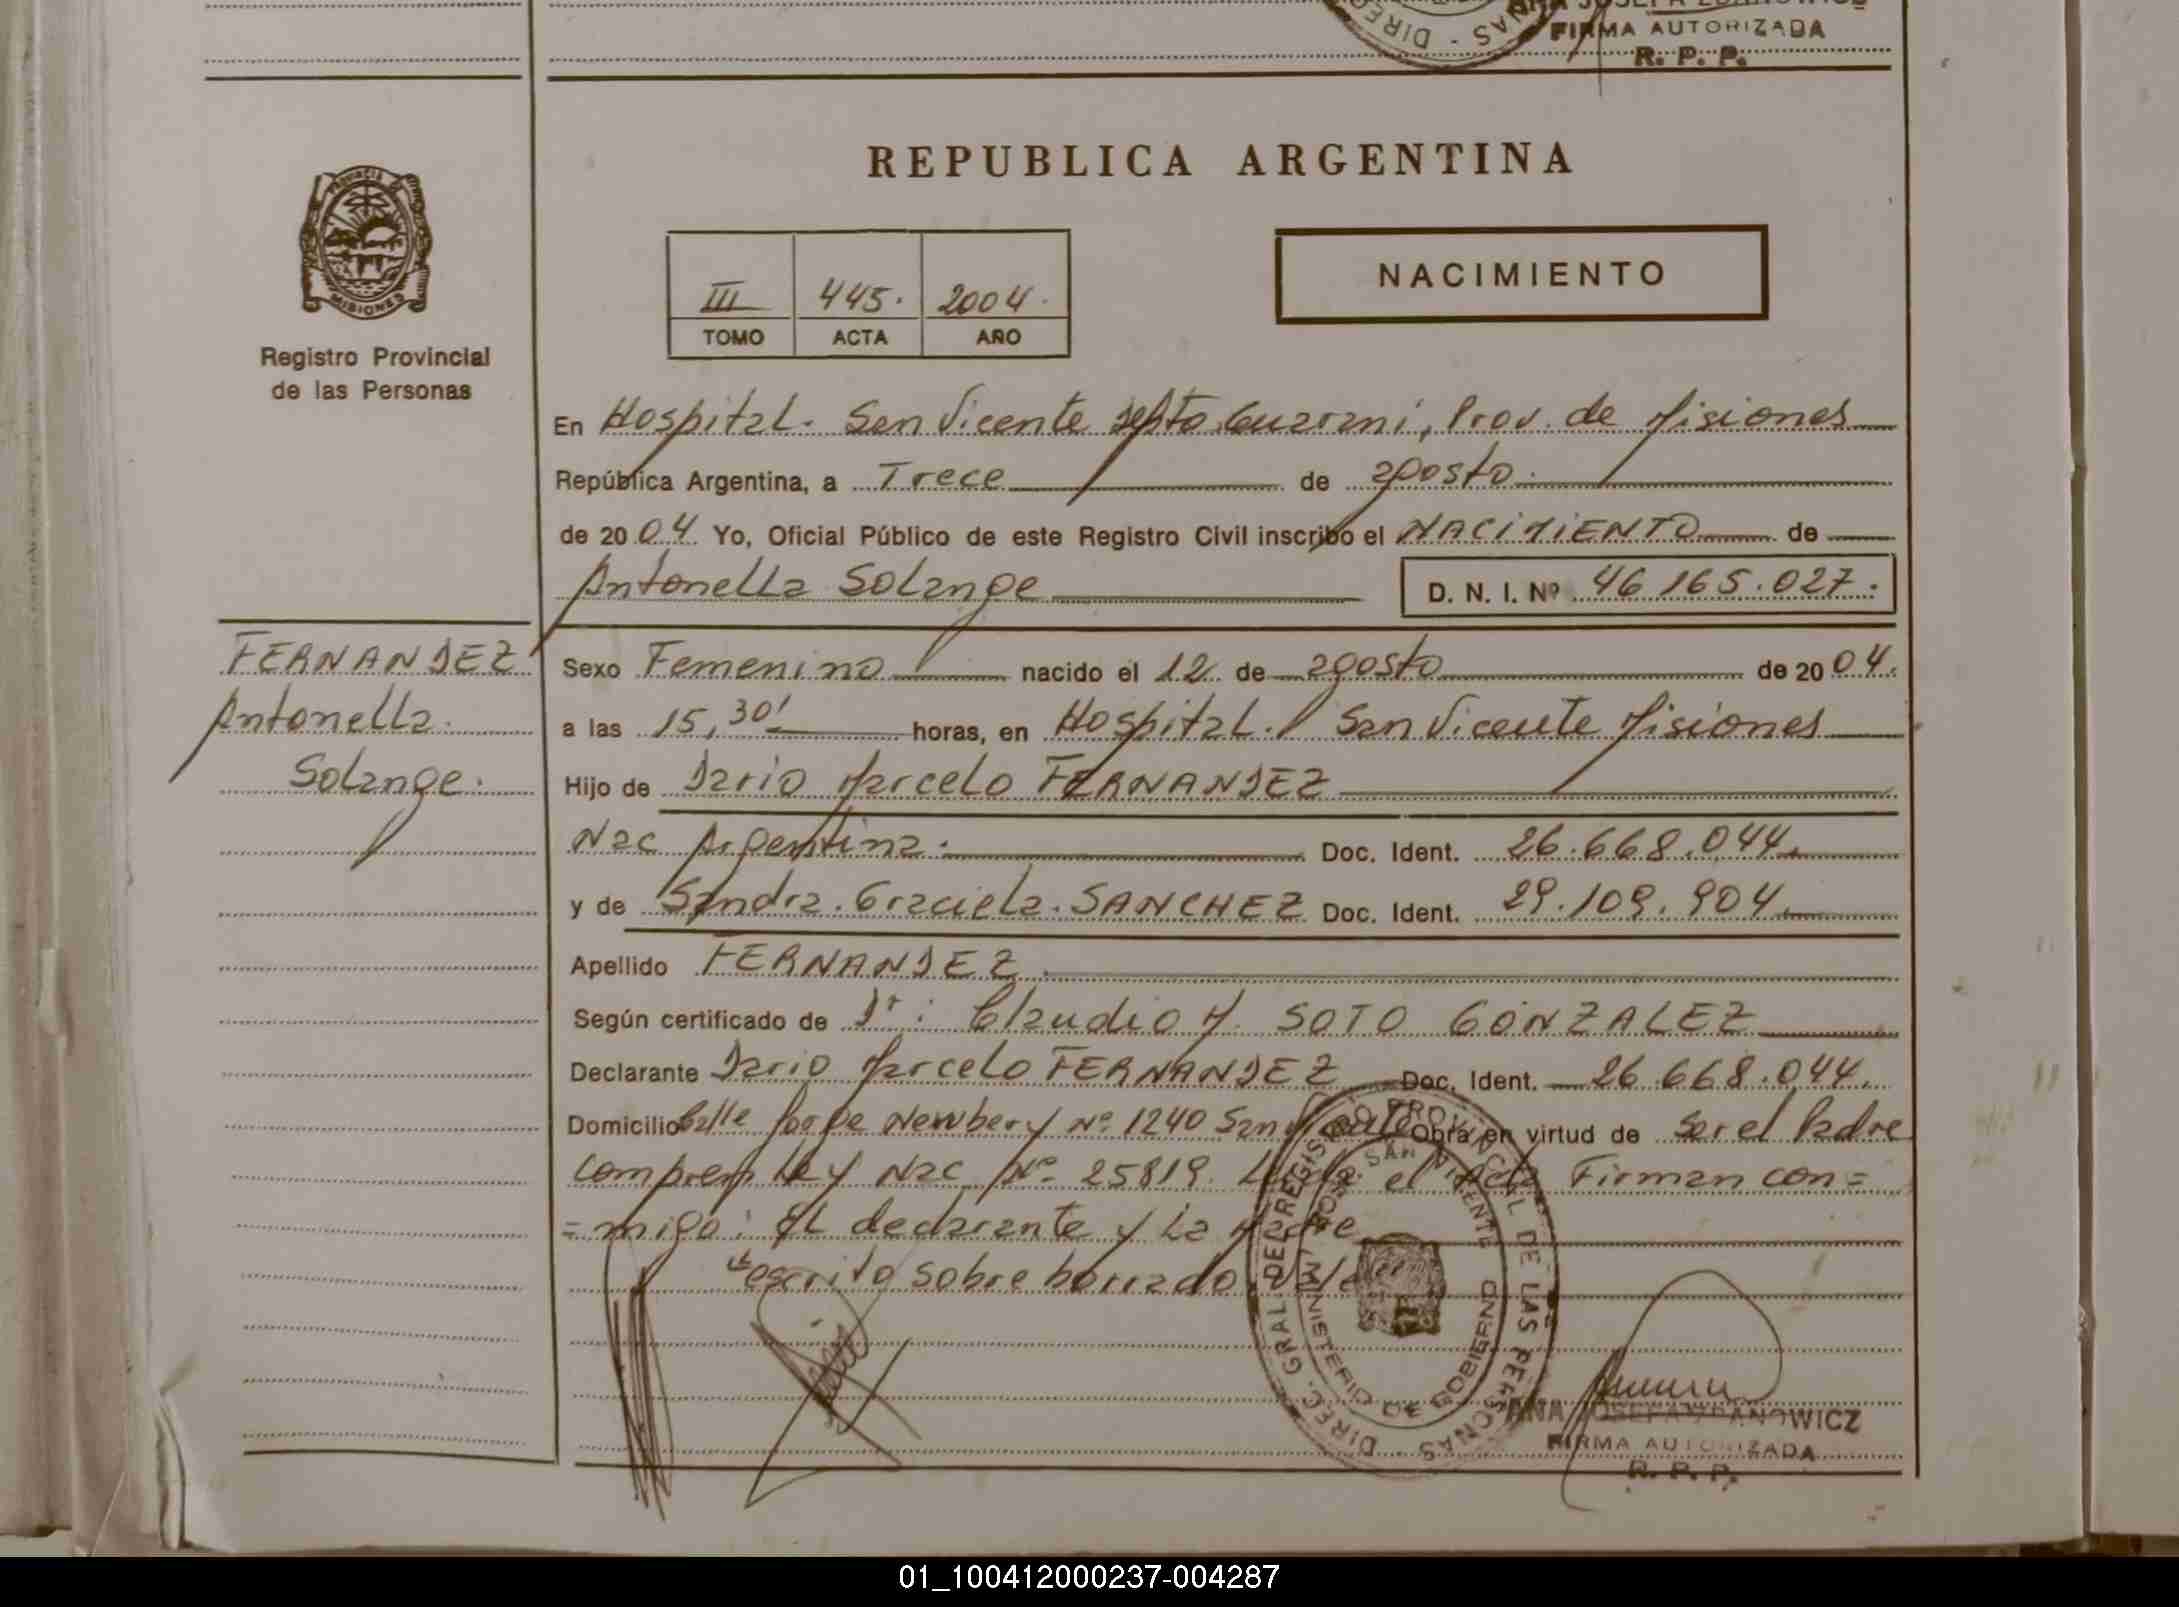 FIRMA AUTORIZADA
R. P. P.
REPUBLICA ARGENTINA
PROVINCIA DE
MISIONES
Registro Provincial
de las Personas
III 445. 2004.
TOMO ACTA AÑO
NACIMIENTO
En Hospital. San Vicente Depto Guarani, Prov. de Misiones
República Argentina, a Trece de agosto.
de 2004 Yo, Oficial Público de este Registro Civil inscribo el NACIMIENTO de
Antonella Solange D. N. I. Nº 46 165.027.
FERNANDEZ
Antonella.
Solange.
Sexo Femenino nacido el 12 de agosto de 2004.
a las 15,30' horas, en Hospital. San Vicente Misiones
Hijo de Dario Marcelo FERNANDEZ
Nac Argentina. Doc. Ident. 26.668.044.
y de Sandra. Graciela. SANCHEZ Doc. Ident. 29.109.904.
Apellido FERNANDEZ.
Según certificado de Dr: Claudio M. SOTO GONZALEZ
Declarante Dario Marcelo FERNANDEZ Doc. Ident. 26 668.044.
Domicilio Calle Jorge Newbery Nº 1240 San Vicente Obra en virtud de Ser el Padre
Compren Ley Nac Nº 25819. Leida el Acta Firman con=
=migo: El declarante y La Madre
escrito sobre borrado. Vale
DIREC. GRAL. DEL REGISTRO PROVINCIAL DE LAS PERSONAS
SAN VICENTE
MINISTERIO DE GOBIERNO
ANA JOSEFA ZDANOWICZ
FIRMA AUTORIZADA
R. P. P.
01_100412000237-004287